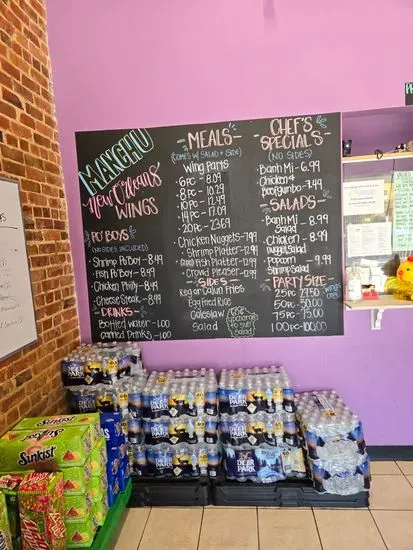 MANCHU
New Orleans
WINGS
PO' BOYS
(NO SIDES INCLUDED)
Shrimp Po'Boy - 8.49
Fish Po'Boy - 8.49
Chicken Philly - 8.49
Cheese Steak - 8.49
DRINKS
Bottled Water - 1.00
Canned Drinks - 1.00
-MEALS-
(COMES W/ SALAD + SIDE)
Wing Parts
6pc - 8.09
8pc - 10.29
10pc - 12.49
14pc - 17.09
20pc - 23.69
Chicken Nuggets - 7.99
Shrimp Platter - 12.49
Fish Platter - 12.49
Crowd Pleaser - 12.99
-SIDES-
Reg or Cajun Fries
Egg Fried Rice
Coleslaw
Salad
65¢
upcharge
to sub
Salad
CHEF'S
SPECIALS-
(NO SIDES)
Banh Mi - 9.99
Chicken
- 7.49
-SALADS-
Banh Mi - 8.99
Salad
Chicken - 8.99
Nugget Salad
Popcorn - 9.99
Shrimp Salad
-PARTY SIZE-
25pc - 27.50
50pc - 50.00
75pc - 75.00
100pc - 100.00
wings
only
SUNKIST
DEER PARK
DEER PARK
DEER PARK